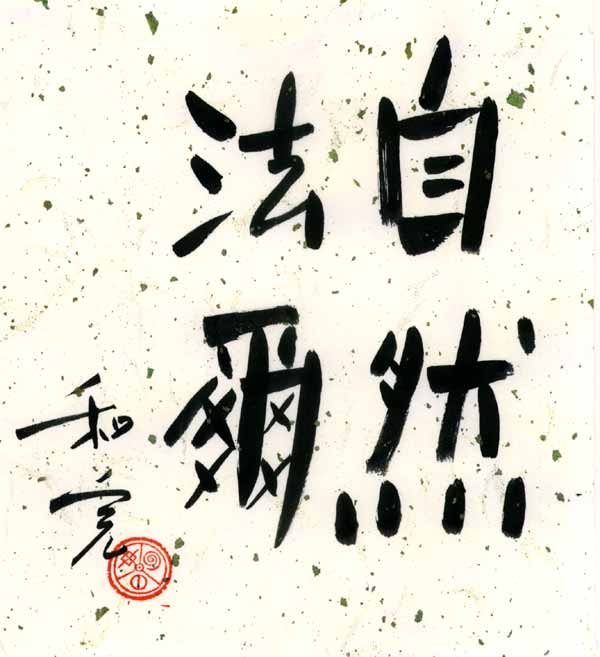 自然
法爾
和